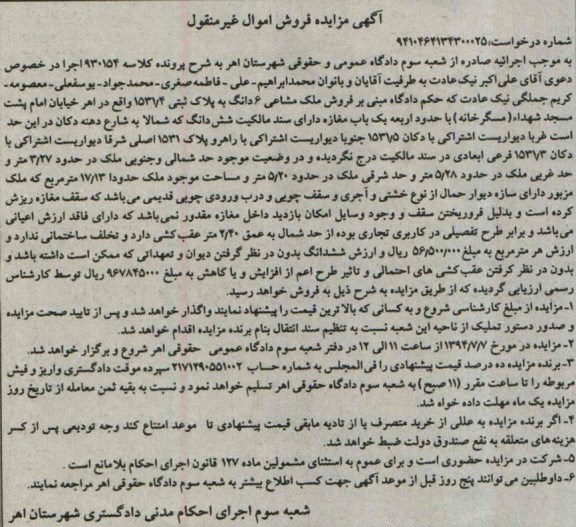 آگهی مزایده فروش اموال غیرمنقول
شماره درخواست: ۹۴۱۰۴۶۴۱۳۴۳۰۰۰۲۵
به موجب اجرائیه صادره از شعبه سوم دادگاه عمومی و حقوقی شهرستان اهر به شرح پرونده کلاسه ۹۳۰۱۵۴ اجرا در خصوص
دعوی آقای علی‌اکبر نیک‌عادت به طرفیت آقایان و بانوان محمدابراهیم-علی - فاطمه‌صغری-محمدجواد-یوسفعلی-معصومه-
کریم جملگی نیک‌عادت که حکم دادگاه مبنی بر فروش ملک مشاعی ۶ دانگ به پلاک ثبتی ۱۵۳۱/۴ واقع در اهر خیابان امام پشت
مسجد شهداء (مسگرخانه) با حدود اربعه یک باب مغازه دارای سند مالکیت شش‌دانگ که شمالا به شارع دهنه دکان در این حد
است غربا دیواریست اشتراکی با دکان ۱۵۳۱/۵ جنوبا دیواریست اشتراکی با راهرو پلاک ۱۵۳۱ اصلی شرقا دیواریست اشتراکی با
دکان ۱۵۳۱/۳ فرعی ابعادی در سند مالکیت درج نگردیده و در وضعیت موجود حد شمالی وجنوبی ملک در حدود ۳/۲۷ متر و
حد غربی ملک در حدود ۵/۲۸ متر و حد شرقی ملک در حدود ۵/۲۰ متر و مساحت موجود ملک حدودا ۱۷/۱۳ مترمربع که ملک
مزبور دارای سازه دیوار حمال از نوع خشتی و آجری و سقف چوبی و درب ورودی چوبی قدیمی می‌باشد که سقف مغازه ریزش
کرده است و بدلیل فروریختن سقف و وجود وسایل امکان بازدید داخل مغازه مقدور نمی‌باشد که دارای فاقد ارزش اعیانی
می‌باشد و برابر طرح تفصیلی در کاربری تجاری بوده از حد شمال به عمق ۲/۴۰ متر عقب‌کشی دارد و تخلف ساختمانی ندارد و
ارزش هر مترمربع به مبلغ ۵۶/۵۰۰/۰۰۰ ریال و ارزش ششدانگ بدون در نظر گرفتن دیوان و تعهداتی که ممکن است داشته باشد و
بدون در نظر گرفتن عقب‌کشی های احتمالی و تاثیر طرح اعم از افزایش و یا کاهش به مبلغ ۹۶۷۸۴۵۰۰۰ ریال توسط کارشناس
رسمی ارزیابی گردیده که از طریق مزایده به شرح ذیل به فروش خواهد رسید.
۱-مزایده از مبلغ کارشناسی شروع و به کسانی که بالاترین قیمت را پیشنهاد نمایند واگذار خواهد شد و پس از تایید صحت مزایده
و صدور دستور تملیک از ناحیه این شعبه نسبت به تنظیم سند انتقال بنام برنده مزایده اقدام خواهد شد.
۲- مزایده در مورخ ۱۳۹۴/۷/۷ از ساعت ۱۱ الی ۱۲ در دفتر شعبه سوم دادگاه عمومی حقوقی اهر شروع و برگزار خواهد شد.
۳-برنده مزایده ده درصد قیمت پیشنهادی را فی‌المجلس به شماره حساب ۲۱۷۱۲۹۰۵۵۱۰۰۲ سپرده موقت دادگستری واریز و فیش
مربوطه را تا ساعت مقرر (۱۱ صبح) به شعبه سوم دادگاه حقوقی اهر تسلیم خواهد نمود و نسبت به بقیه ثمن معامله از تاریخ روز
مزایده یک ماه مهلت داده خواه شد.
۴-اگر برنده مزایده به عللی از خرید متصرف یا از تادیه مابقی قیمت پیشنهادی تا موعد امتناع کند وجه تودیعی پس از کسر
هزینه‌های متعلقه به نفع صندوق دولت ضبط خواهد شد.
۵-شرکت در مزایده حضوری است و برای عموم به استثنای مشمولین ماده ۱۲۷ قانون اجرای احکام بلامانع است .
۶-داوطلبین می‌توانند پنج روز قبل از موعد آگهی جهت کسب اطلاع بیشتر به شعبه سوم دادگاه حقوقی اهر مراجعه نمایند.
شعبه سوم اجرای احکام مدنی دادگستری شهرستان اهر